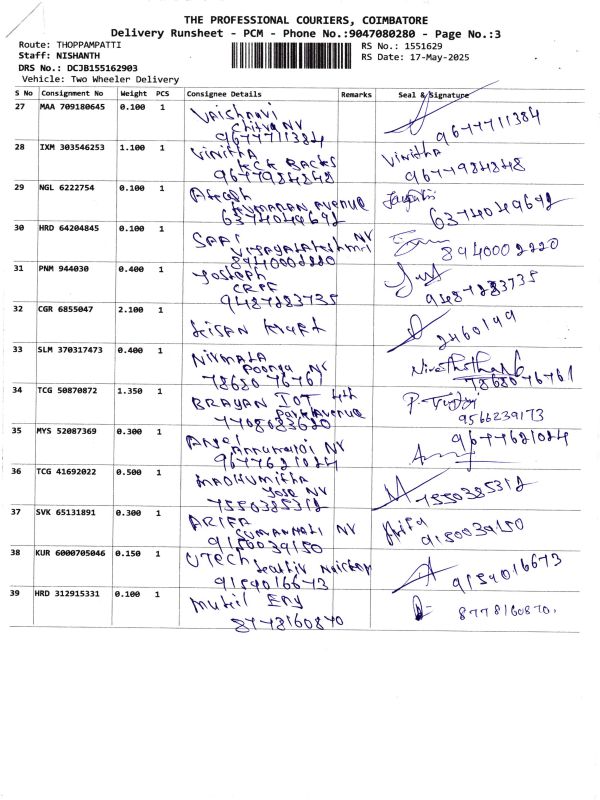 THE PROFESSIONAL COURIERS, COIMBATORE
Delivery Runsheet - PCM - Phone No.:9047080280 - Page No.:3
Route: THOPPAMPATTI RS No.: 1551629
Staff: NISHANTH RS Date: 17-May-2025
DRS No.: DCJB155162903
Vehicle: Two Wheeler Delivery
S No Consignment No Weight PCS Consignee Details Remarks Seal & Signature
27 MAA 709180645 0.100 1 Vaishnavi
Chitra NV
9677711384 9677711384
28 IXM 303546253 1.100 1 Vinitha Vinitha
KCK BACKS
9677984848 9677984848
29 NGL 6222754 0.100 1 Akash
KUMARAN AVENUE
6374049692 6374049692
30 HRD 64204845 0.100 1 SAAI NV
Vijayalakshmi
8940002220 8940002220
31 PNM 944030 0.400 1 Joseph
CRPF
9487283735 9487283735
32 CGR 6855047 2.100 1 2460199
33 SLM 370317473 0.400 1 Nirmala
Poonga NV
78680 76761 78680 76761
34 TCG 50870872 1.350 1 BRAYAN IOT 4th
Park Avenue
7708083620 9566239173
35 MYS 52087369 0.300 1 Annamalai NV
9677621024 9677621024
36 TCG 41692022 0.500 1 MADHUMITHA
Jose NV
7550385312 7550385312
37 SVK 65131891 0.300 1 ARIFA Arifa
NV
9150039150 9150039150
38 KUR 6000705046 0.150 1 UTECH
9159016673 9159016673
39 HRD 312915331 0.100 1 Mukil Eng
8778160870 8778160870.